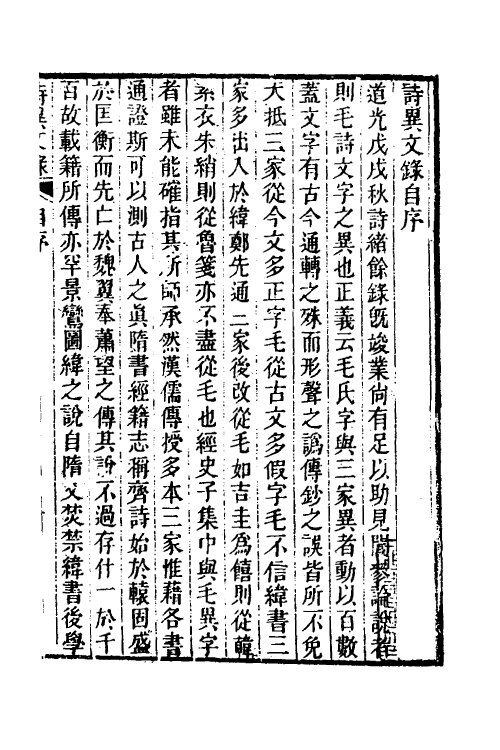 詩異文錄自序
道光戊戌秋詩緒餘錄旣竣業尙有足以助見聞參論說者
則毛詩文字之異也正義云毛氏字與三家異者動以百數
蓋文字有古今通轉之殊而形聲之譌傳鈔之誤皆所不免
大抵三家從今文多正字毛從古文多假字毛不信緯書三
家多出入於緯鄭先通三家後改從毛如吉圭爲饎則從韓
素衣朱綃則從魯箋亦不盡從毛也經史子集中與毛異字
者雖未能確指其所師承然漢儒傳授多本三家惟藉各書
通證斯可以測古人之眞隋書經籍志稱齊詩始於轅固盛
於匡衡而先亡於魏翼奉蕭望之傳其說不過存什一於千
百故載籍所傳亦罕景鸞圖緯之說自隋文焚禁緯書後學
詩異文錄 自序